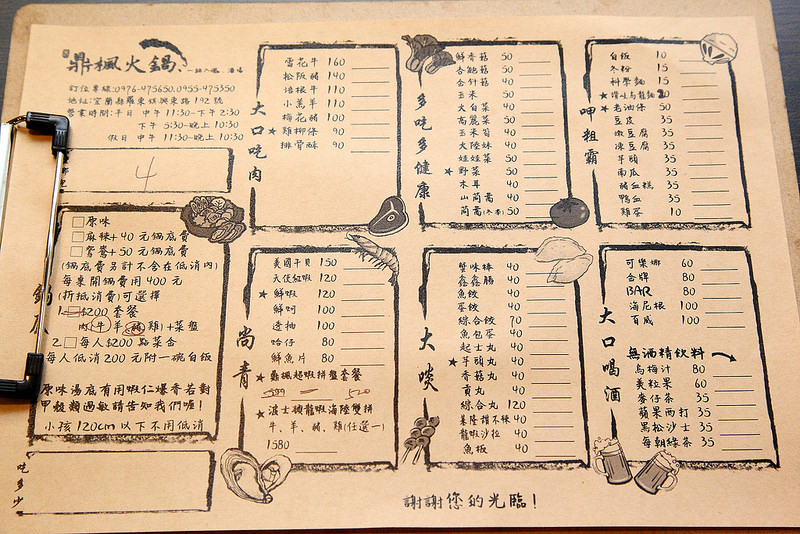 鼎楓火鍋
訂位專線:0976-475650.0955-475350
地址:宜蘭縣羅東鎮興東路192號
營業時間:平日 中午11:30-下午2:30
下午5:30-晚上10:30
假日 中午11:30-晚上10:30
4
鍋底
□原味
□麻辣+40元鍋底費
□鴛鴦+50元鍋底費
(鍋底費另計不含在低消內)
每桌開鍋費用400元
(折抵消費)可選擇
1.□$200套餐
肉(牛羊豬雞)+菜盤
2.□每人$200點菜合
每人低消200元附一碗白飯
原味湯底有用蝦仁爆香若對
甲殼類過敏請告知我們喔!
小孩120cm以下不用低消
吃多少
大口吃肉
雪花牛 160
松阪豬 140
培根牛 110
小羔羊 110
梅花豬 100
★雞柳條 90
排骨酥 90
尚青
美國干貝 150
天使紅蝦 120
★鮮蝦 120
鮮蚵 100
透抽 100
蛤仔 80
鮮魚片 80
★鼎楓超蝦拼盤套餐
599 520
★波士頓龍蝦海陸雙拼
牛、羊、豬、雞(任選一)
1580
多吃多健康
鮮香菇 50
杏鮑菇 50
金針菇 40
玉米 40
大白菜 40
高麗菜 50
玉米筍 40
大陸妹 40
娃娃菜 50
★野菜 50
木耳 40
山茼蒿 40
茼蒿(冬季) 50
大啖
蟹味棒 40
鑫鑫腸 40
魚餃 40
蛋餃 40
綜合餃 70
魚包蛋 40
起士丸 40
★芋頭丸 40
香菇丸 40
貢丸 40
綜合丸 120
基隆甜不辣 40
龍蝦沙拉 40
魚板 40
呷粗霸
白飯 10
冬粉 15
科學麵 15
★讚岐烏龍麵 20
★老油條 50
豆皮 35
嫩豆腐 35
凍豆腐 35
芋頭 35
南瓜 35
豬血糕 35
鴨血 35
雞蛋 10
大口喝酒
可樂娜 60
金牌 80
BAR 80
海尼根 100
百威 100
無酒精飲料
烏梅汁 80
美粒果 60
麥仔茶 35
蘋果西打 35
黑松沙士 35
每朝綠茶 35
謝謝您的光臨!